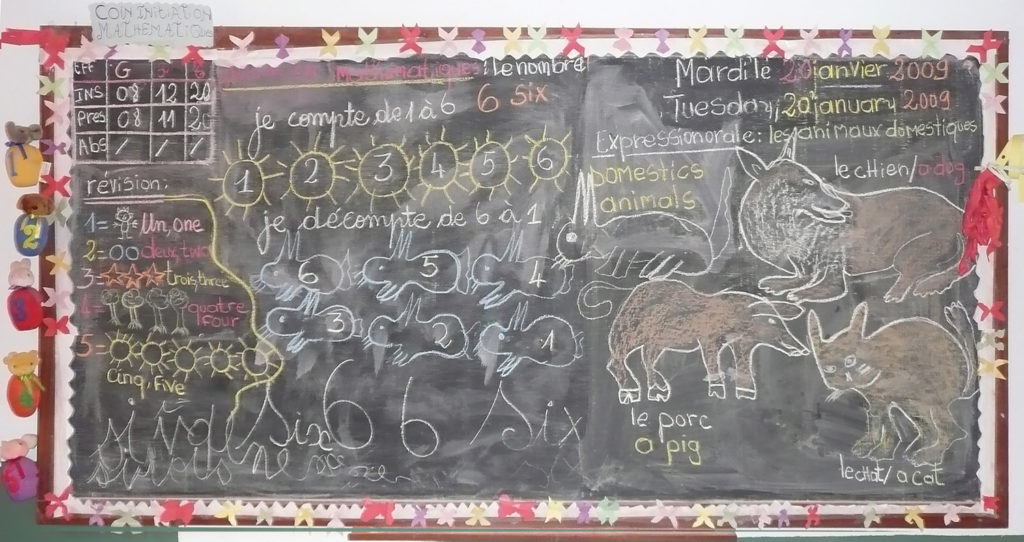 COIN INITIATION
MATHEMATIQUES
Eff G
INS 08 12 20
Pres 08 11 20
Abs / / /
révision:
1= Un, one
2= deux, two
3= trois, three
4= quatre
four
5=
cinq, five
mathématiques: le nombre
6 six
je compte de 1 à 6
1 2 3 4 5 6
je décompte de 6 à 1
6 5 4
3 2 1
six 6 6 six
Mardi le 20 janvier 2009
Tuesday, 20 january 2009
Expression orale: les animaux domestiques
Domestics
animals
le chien/a dog
le porc
a pig
le chat/ a cat
1
2
3
4
5